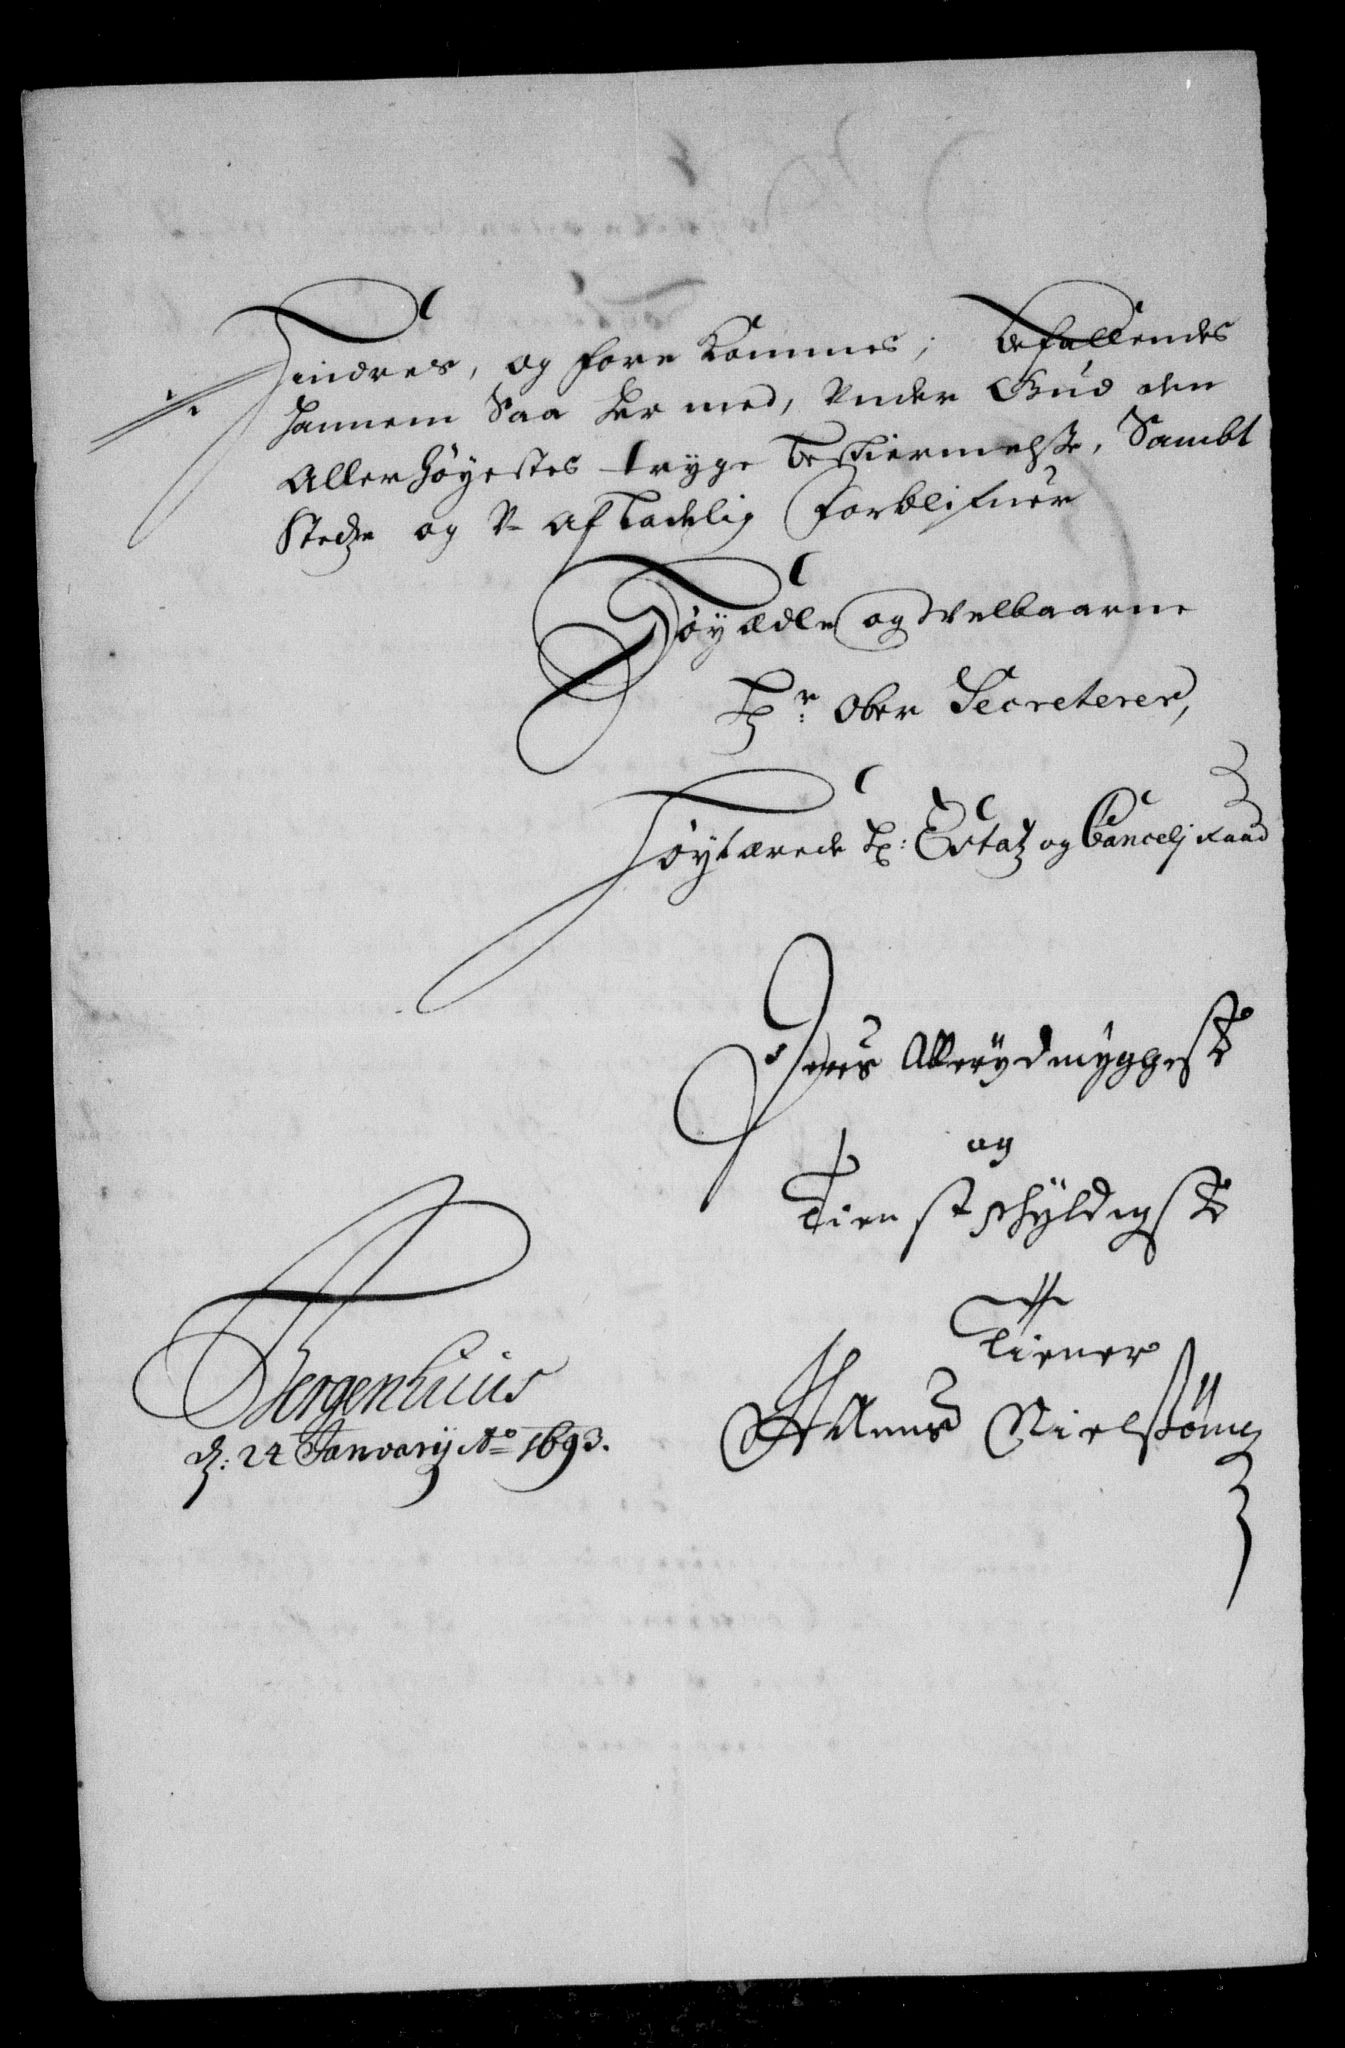 Hindres, og fore kommes; befallendes
hannem Saa her med, Under Gud den
Allerhøyestes trÿge beskiermelsse, Sambt
Stedze og U-afladelig Forblifuer
Høyædle og Velbaarne
Hr: Ober Secreterer,
Høylærede Hr: Estatz og Cancelj Raad
Deres Allerÿdmÿggeste
og
Tienstschÿldigste
Tiener
Hanns Nielssønn
Bergenhuus
d: 24 Januarij Ao 1693.